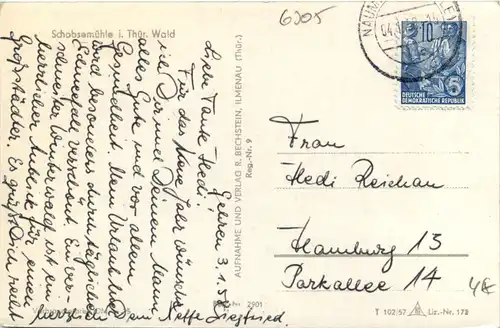 Schobsemühle i. Thür. Wald
6205
Gehren 3.1.58
Liebe Tante Hedi!
Für das Neue Jahr wünsche
ich Dir und Deinem Mann
alles Gute und vor allem
Gesundheit. Mein Urlaub hier
wird besonders durch täglichen
Schneefall verschönt. Ein ver-
schneiter Winterwald ist ein
herrlicher Anblick für einen
Großstädter. Es grüßt Dich recht
herzlich Dein Neffe Siegfried.
AUFNAHME UND VERLAG R. BECHSTEIN, ILMENAU (THÜR.)
Reg.-Nr. 9
2901
NAUMB
10
DEUTSCHE
DEMOKRATISCHE REPUBLIK
Frau
Hedi Reichau
Hamburg 13
Parkallee 14
T 102/57
Liz.-Nr. 172